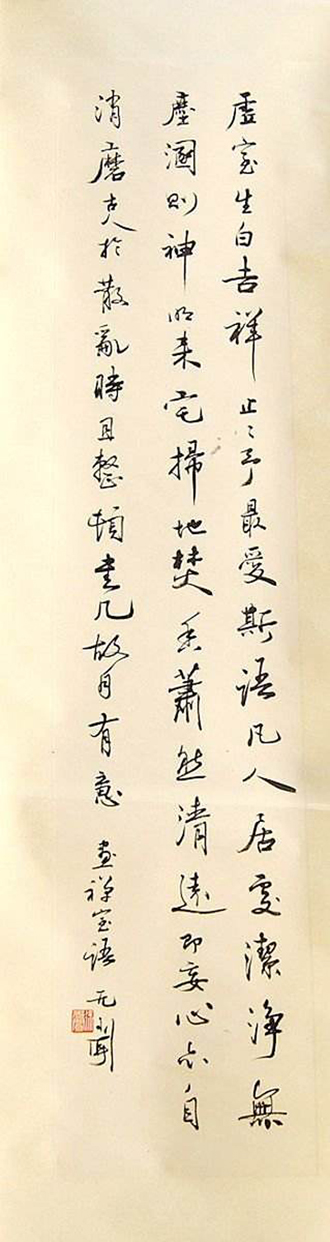 虛室生白吉祥止止予最愛斯語凡人居處潔淨無
塵溷則神明來宅掃地焚香蕭然清遠即妄心亦自
消磨古人於散亂時且整頓書几故自有意
畫禪室語 无聞